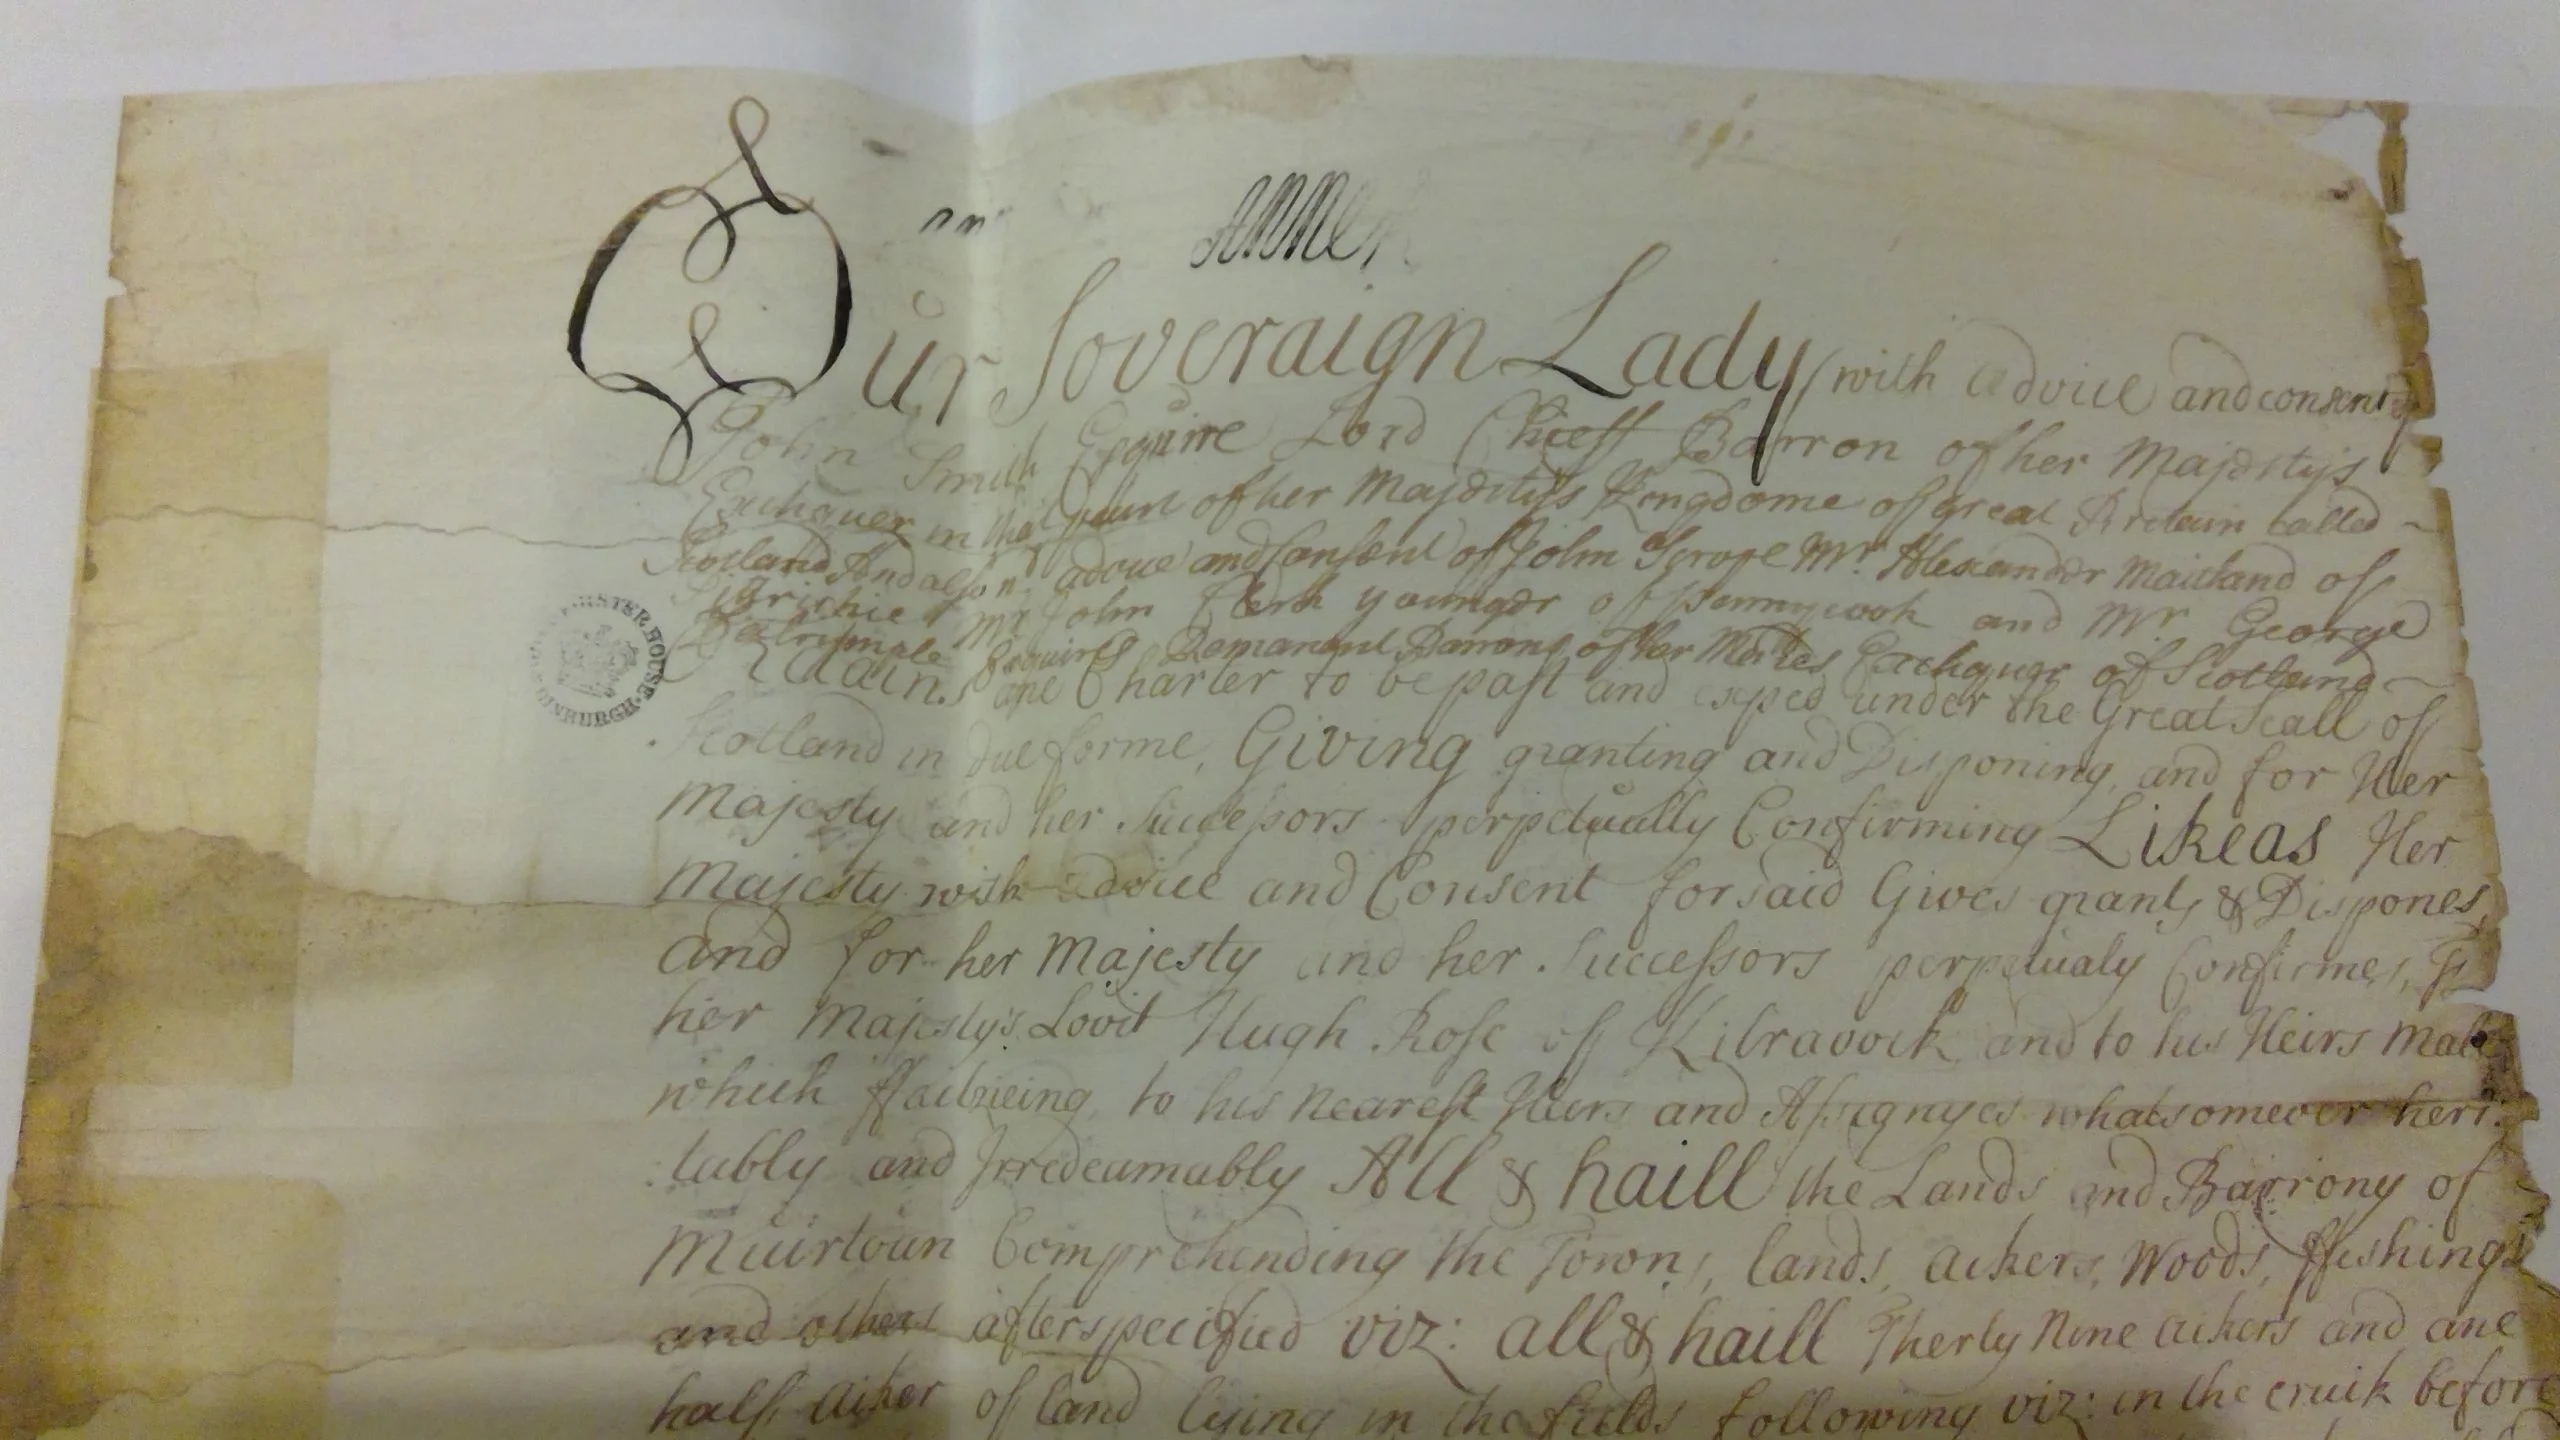 ANNE R
Our Soveraign Lady with advice and consent of
John Smith Esquire Lord Chieff Barron of her Majestys
Exchequer in that pairt of her Majestys Kingdome of great Britain called
Scotland And also advice and Consent of John Scrope Mr Alexander Maitland of
Pitrichie Mr John Clerk younger of Pennycook and Mr George
Dalrymple Esquires Remanent Barrons of her Maties Exchequer of Scotland
ane Charter to be past and exped under the Great Seall of
Scotland in due forme, Giving granting and Disponing, and for Her
Majesty and her Successors perpetually Confirming Likeas Her
Majesty with advice and Consent forsaid Gives grants & Dispones,
and for her Majesty and her Successors perpetualy Confirmes, To
her Majesty's Lovit Hugh Rose of Kilravock and to his Heirs Male
which ffailzieing, to his nearest Heirs and Assignyes whatsomever heri:
:tably and Irredeamably All & haill the Lands and Barrony of
Muirtoun Comprehending the Towns, lands, aikers, Woods, ffishings
and others afterspecified viz: all & haill Therty Nine aikers and ane
half aiker of land lying in the fields following viz: in the cruik before
REGISTER HOUSE · EDINBURGH ·